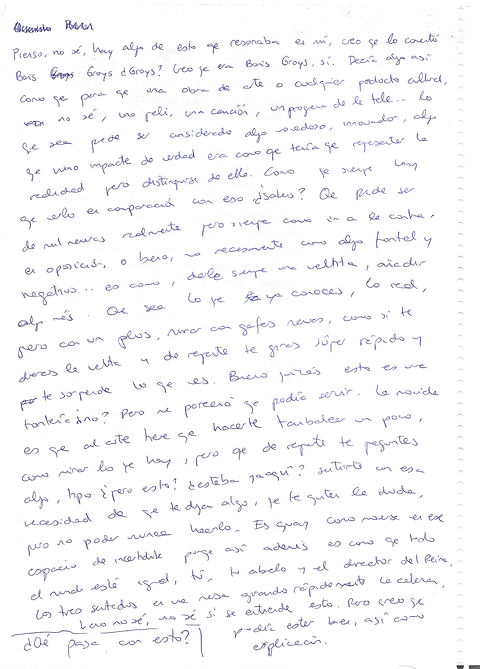 Pienso, no sé, hay algo de esto qe resonaba en mí, creo qe lo contó
Boris Groys ¿Groys? Creo qe era Boris Groys, sí. Decía algo así
como qe para qe una obra de arte o cualquier producto cultural,
no sé, una peli, una canción, un programa de la tele... lo
qe sea puede ser considerado algo novedoso, innovador, algo
qe como impacte de verdad era como qe tenía qe representar la
realidad pero distinguirse de ella. Como qe siempre hay
qe verlo en comparación con eso ¿sabes? Qe puede ser
de mil maneras realmente pero siempre como ir a la contra,
en oposición, o bueno, no necesariamente como algo frontal y
negativo... es como, darle siempre una vueltita, añadir
algo más. Qe sea lo qe ya conoces, lo real,
pero con un plus, mirar con gafas nuevas, como si te
dieras la vuelta y de repente te giras súper rápido y
te sorprende lo qe ves. Bueno quizás esto es una
tontería ¿no? Pero me pareció qe podía servir. La movida
es qe al arte tiene qe hacerte tambalear un poco,
como mirar lo qe hay, pero qe de repente te preguntes
algo, tipo ¿pero esto? ¿estaba aquí? sentirte con esa
necesidad de qe te digan algo, qe te quiten la duda,
pero no poder nunca hacerlo. Es guay como moverse en ese
espacio de incertidumbre porqe así además es como qe todo
el mundo está igual, tú, tu abuelo y el director del Reina.
Los tres sentados en una mesa girando rápidamente la cabeza.
Bueno no sé, no sé si se entiende esto. Pero creo qe
podría estar bien, así como
explicación.
¿Qé pasa con esto?